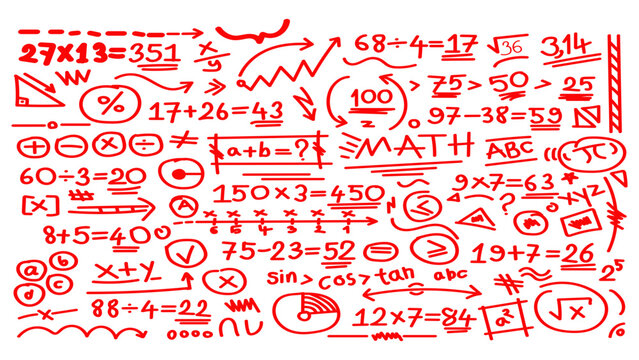 27×13=351 x/y 68÷4=17 √36 3,14
% 17+26=43 100 > 75 > 50 > 25
z 97-38=59
+ - × ÷ ≠ a+b=? MATH ABC π
60÷3=20 150×3=450 9×7=63 xyz
[x] A x x x x x x N ≤ ?
6 5 4 3 2 1
8+5=40 75-23=52 = ≥ 19+7=26
a b x+y x sin> cos> tan abc 2⁵
d c
-x- 88÷4=22 ∩ ∪ 12×7=84 a² √x